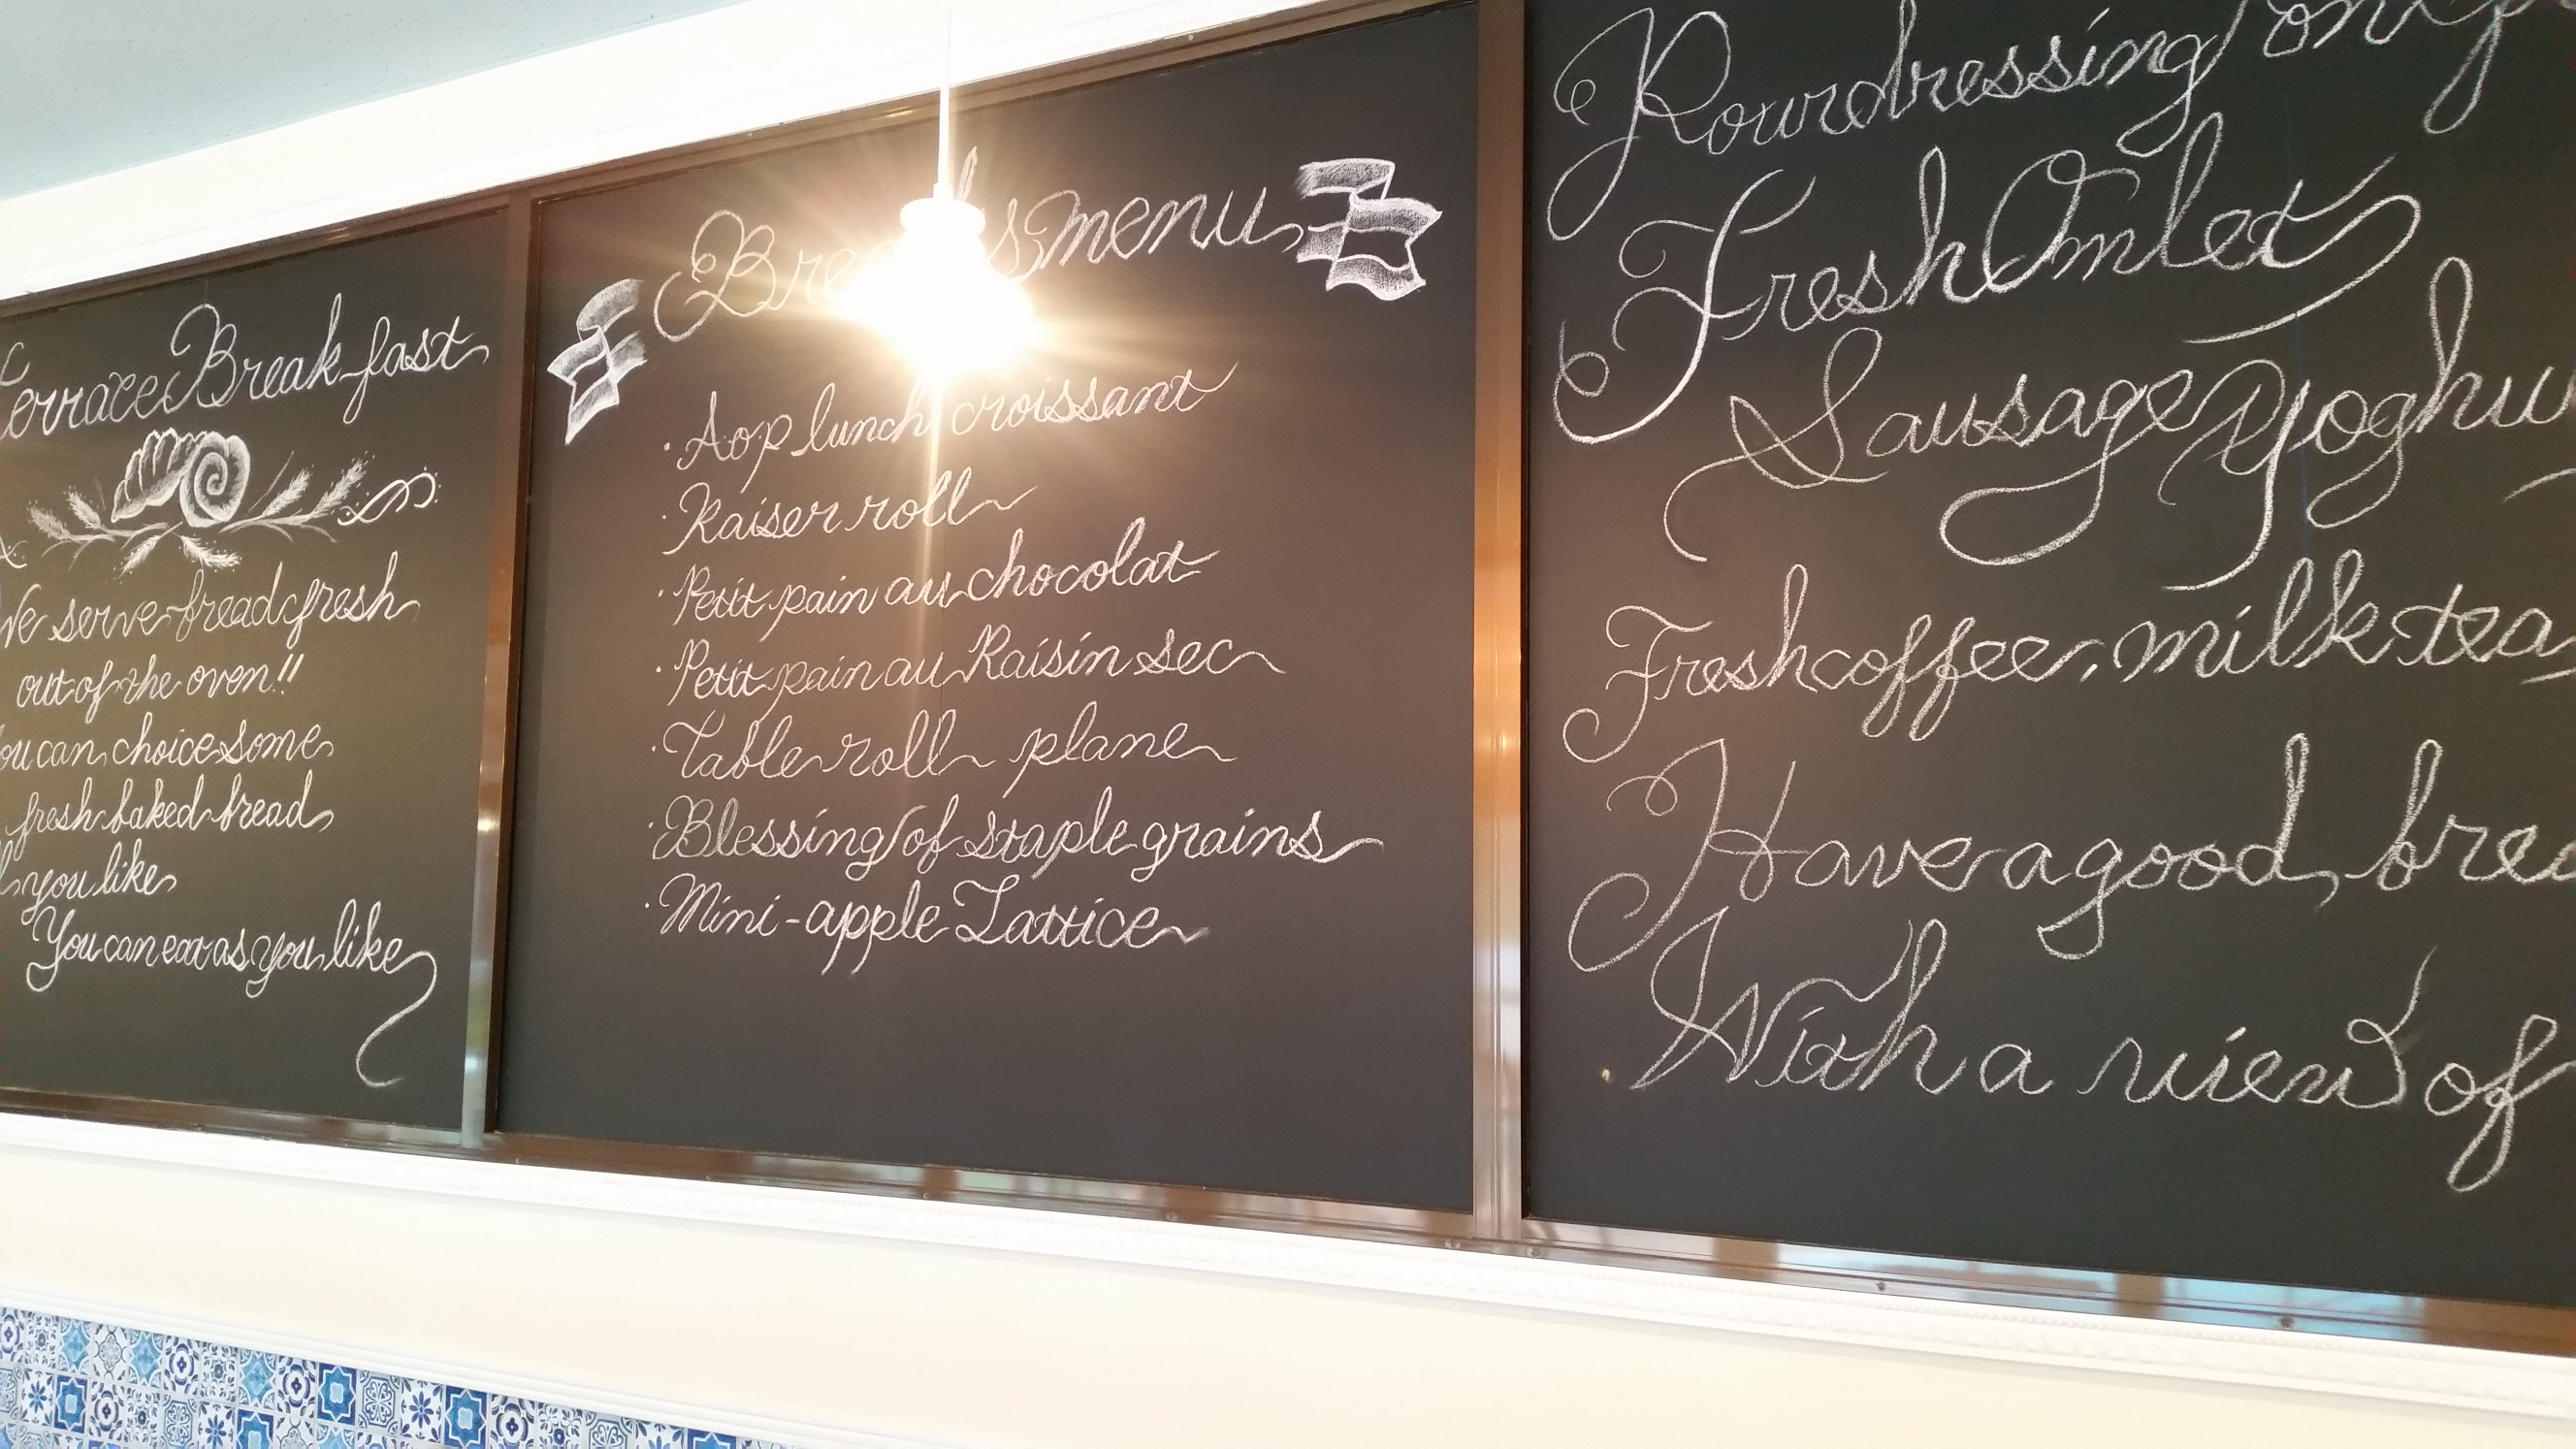 Terrace Breakfast
We serve bread fresh
out of the oven!!
You can choice some
fresh baked bread
you like
You can eat as you like
menu
· Aop lunch croissant
· Kaiser roll
· Petit pain au chocolat
· Petit pain au Raisin sec
· Table roll plane
· Blessing of staple grains
· Mini-apple Lattice
dressing
Fresh Omlet
Sausage
Fresh coffee, milk tea
Have a good
With a view of